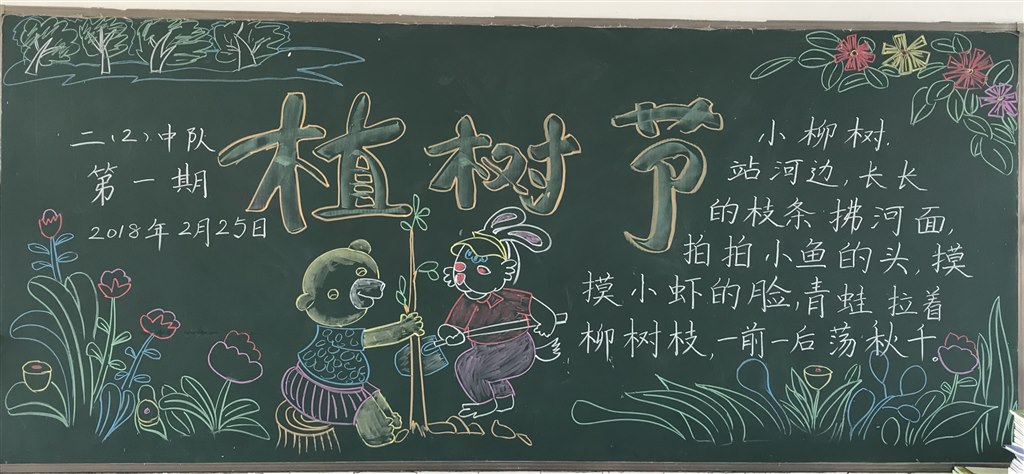 植树节
二(2)中队
第一期
2018年2月25日
小柳树.
站河边,长长
的枝条拂河面,
拍拍小鱼的头,摸
摸小虾的脸,青蛙拉着
柳树枝,一前一后荡秋千。